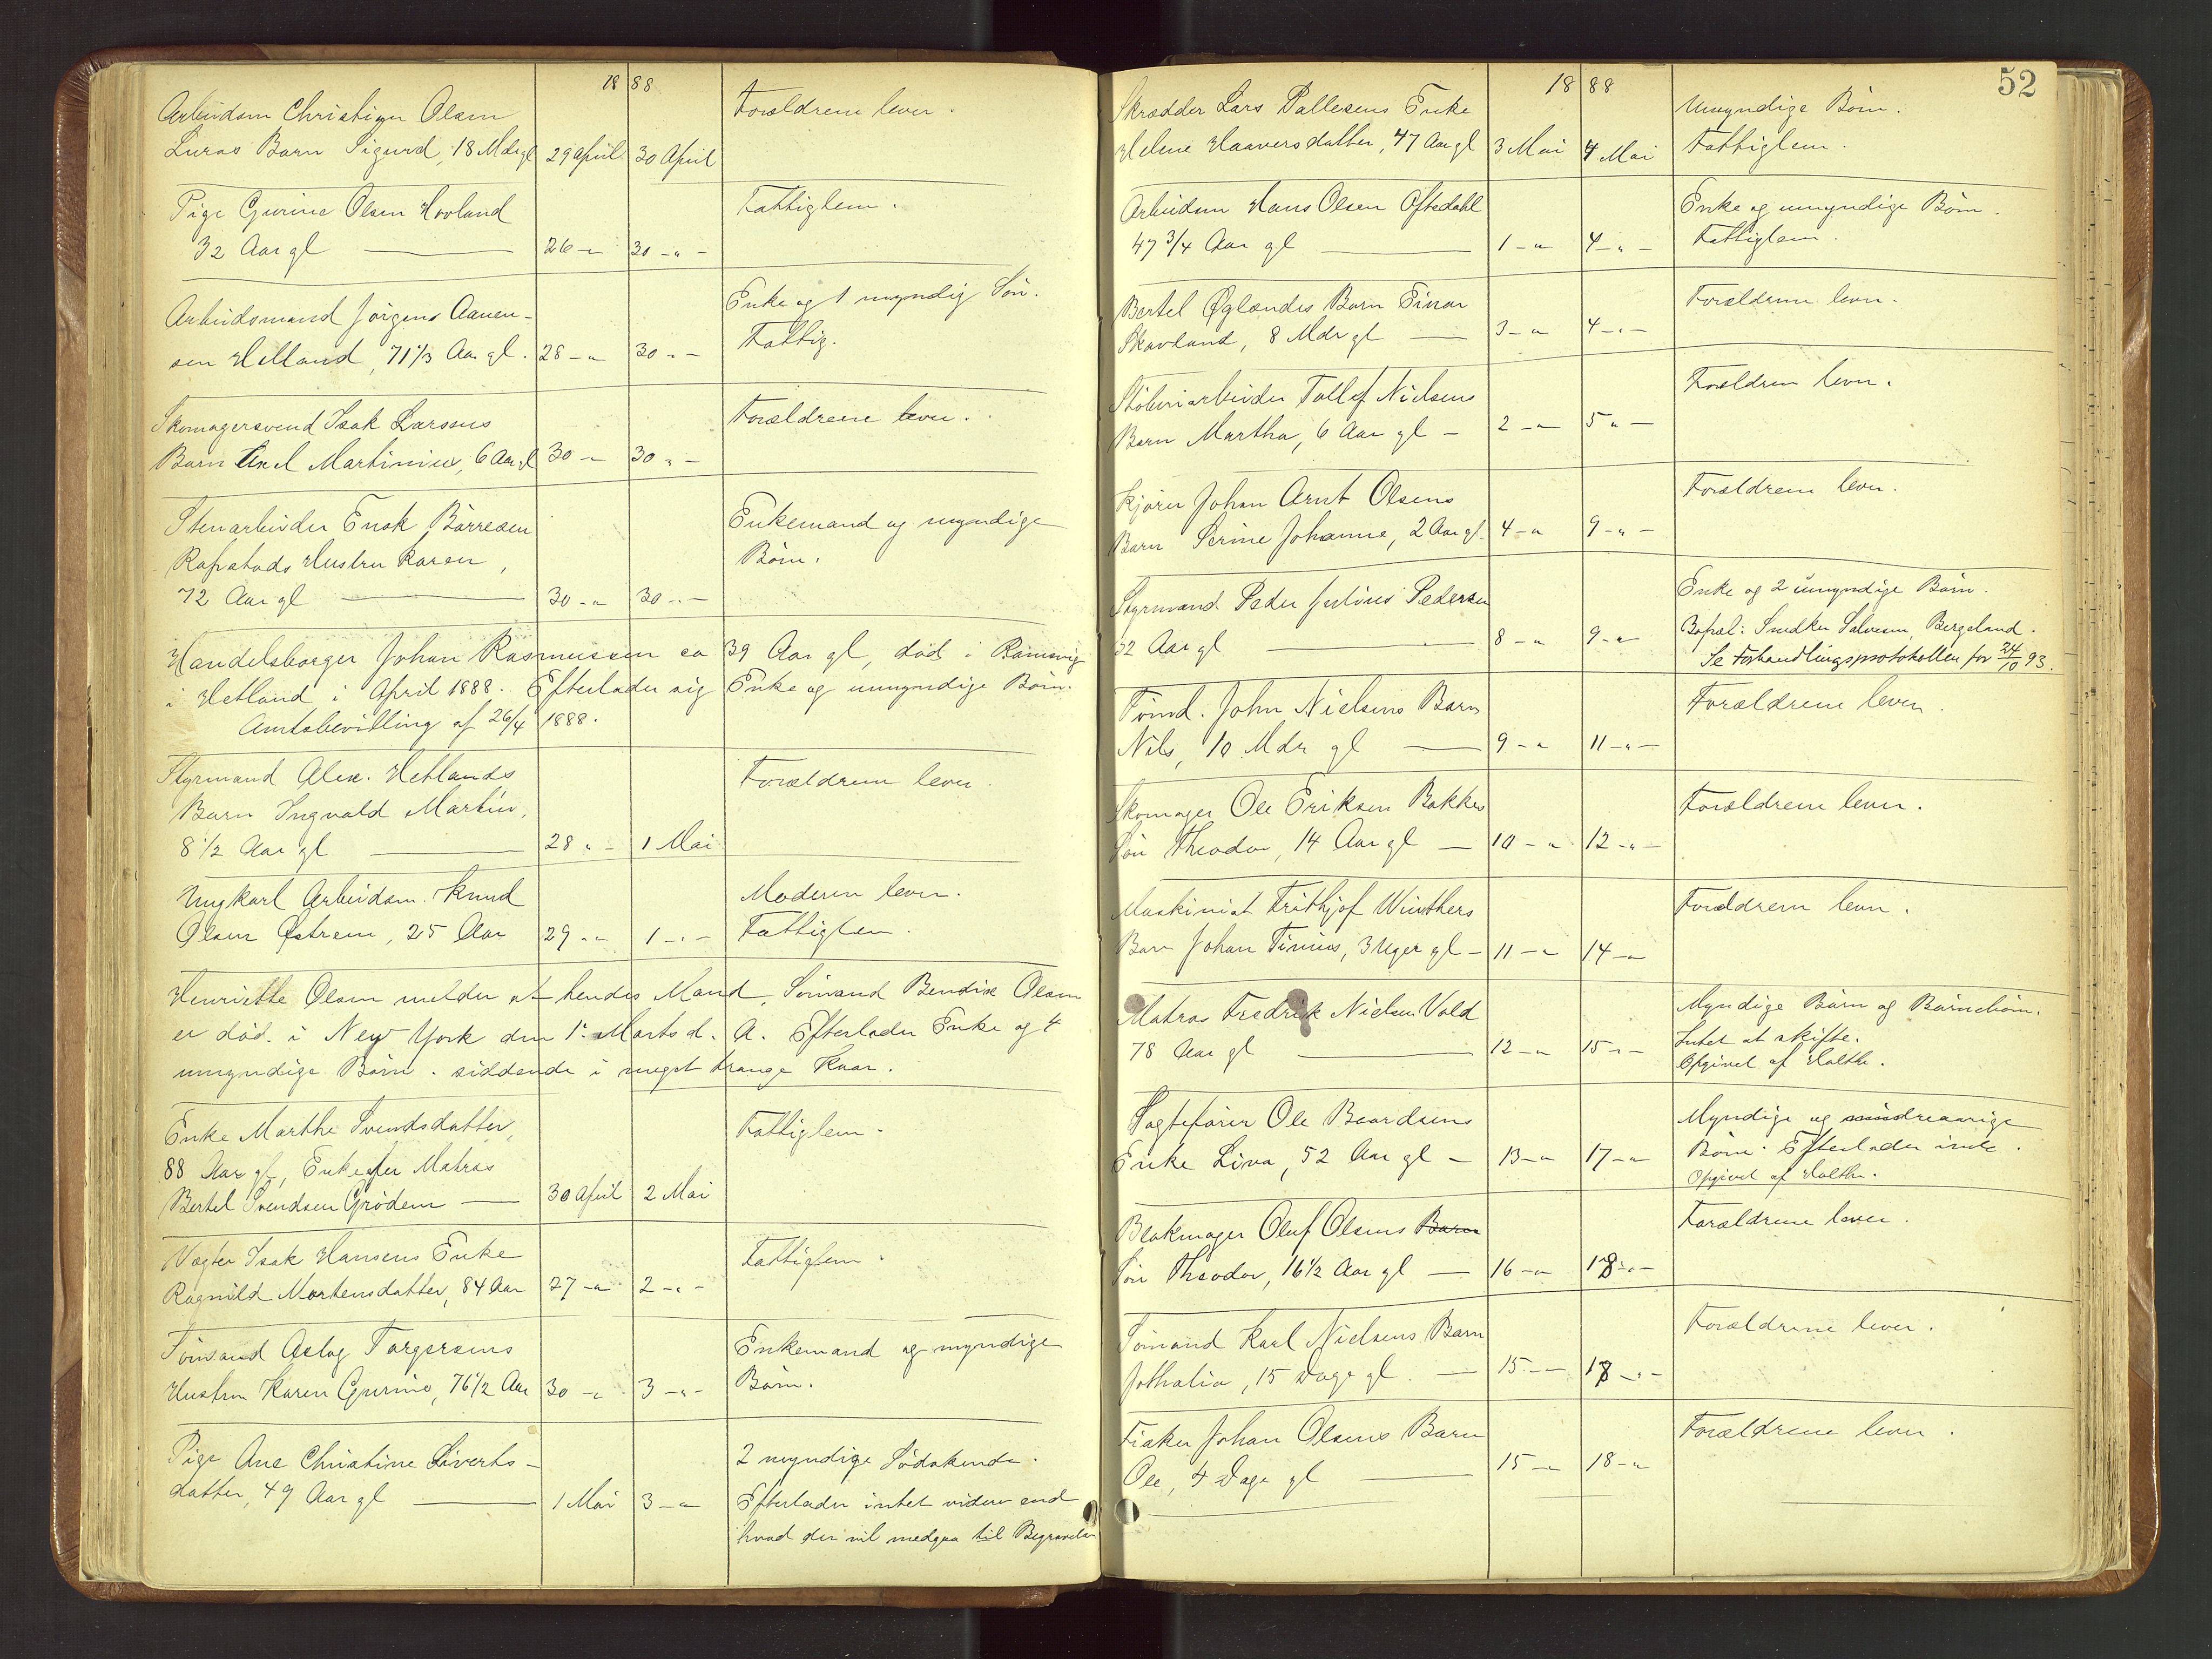 18 88
Arbeidsm Christian Olsen
Luras Barn Sigurd, 18 Mdr gl 29 April 30 April Forældrene lever.
Pige Gurine Olsen Hovland
32 Aar gl — 26 -"- 30 -"- Fattiglem.
Arbeidsmand Jörgens Aanen-
sen Helland, 71 1/3 Aar gl. 28 -"- 30 -"- Enke og 1 myndig Sön.
Fattig.
Skomagersvend Isak Larsens
Barn Axel Martinius, 6 Aar gl 30 -"- 30 -"- Forældrene lever.
Stenarbeider Enok Börresen
Rapstads Hustru Karen,
72 Aar gl — 30 -"- 30 -"- Enkemand og myndige
Börn.
Handelsborger Johan Rasmussen ca 39 Aar gl, död i Ramsvig
i Hetland i April 1888. Efterlader sig Enke og umyndige Börn.
Amtsbevilling af 26/4 1888.
Styrmand Alex. Hetlands
Barn Ingvald Martin,
8 1/2 Aar gl — 28 -"- 1 Mai Forældrene lever.
Ungkarl Arbeidsm. Knud
Olsen Østrem, 25 Aar 29 -"- 1 -"- Moderen lever.
Fattiglem.
Henriette Olsen melder at hendes Mand, Sömand Bendix Olsen
er död i New York den 1. Marts d. A. Efterlader Enke og 4
umyndige Börn. siddende i meget trange Kaar.
Enke Marthe Svendsdatter,
88 Aar gl, Enke efter Matros
Bertel Svendsen Grödem — 30 April 2 Mai Fattiglem.
Vægter Isak Hansens Enke
Ragnild Mortensdatter, 84 Aar 27 -"- 2 -"- Fattiglem.
Tömand Aslag Torgersens
Hustru Karen Gurine, 76 1/2 Aar 30 -"- 3 -"- Enkemand og myndige
Börn.
Pige Ane Christine Siverts-
datter, 49 Aar gl — 1 Mai 3 -"- 2 myndige Södskende.
Efterlader intet videre end
hvad der vil medgaa til Begravelsen
52
18 88
Skrædder Lars Pallesens Enke
Helene Haaversdatter, 47 Aar gl 3 Mai 4 Mai Umyndige Börn.
Fattiglem.
Arbeidsm Hans Olsen Oftedahl
47 3/4 Aar gl — 1 -"- 4 -"- Enke og umyndige Börn.
Fattiglem.
Bertel Øglænds Barn Einar
Skavland, 8 Mdr gl — 3 -"- 4 -"- Forældrene lever.
Stöberiarbeider Tollef Nielsens
Barn Martha, 6 Aar gl — 2 -"- 5 -"- Forældren lever.
Kjörer Johan Arnt Olsens
Barn Serine Johanne, 2 Aar gl. 4 -"- 9 -"- Forældrene lever.
Styrmand Peder Julius Pedersen
32 Aar gl — 8 -"- 9 -"- Enke og 2 umyndige Börn.
Bopæl: Snedker Salvesen, Bergeland.
Se Forhandlingsprotokollen for 24/10 93.
Tömd. John Nielsens Barn
Nils, 10 Mdr gl — 9 -"- 11 -"- Forældrene lever.
Skomager Ole Eriksen Bakkes
Sön Theodor, 14 Aar gl — 10 -"- 12 -"- Forældrene lever.
Maskinist Frithjof Winthers
Barn Johan Tinius, 3 Uger gl — 11 -"- 14 -"- Forældrene lever.
Matros Fredrik Nielsen Vold
78 Aar gl — 12 -"- 15 -"- Myndige Börn og Börnebörn.
Intet at skifte.
Opgivet af Holthe.
Jagtefører Ole Baardsens
Enke Liva, 52 Aar gl — 13 -"- 17 -"- Myndige og mindreaarige
Börn. Efterlader intet.
Opgivet af Holthe.
Blokmager Oluf Olsens Barn
Sön Theodor, 16 1/2 Aar gl — 16 -"- 18 -"- Forældrene lever.
Tömand Karl Nielsens Barn
Jothalia, 15 Dage gl. — 15 -"- 18 -"- Forældrene lever.
Fisker Johan Olsens Barn
Ole, 4 Dage gl — 15 -"- 18 -"- Forældrene lever.